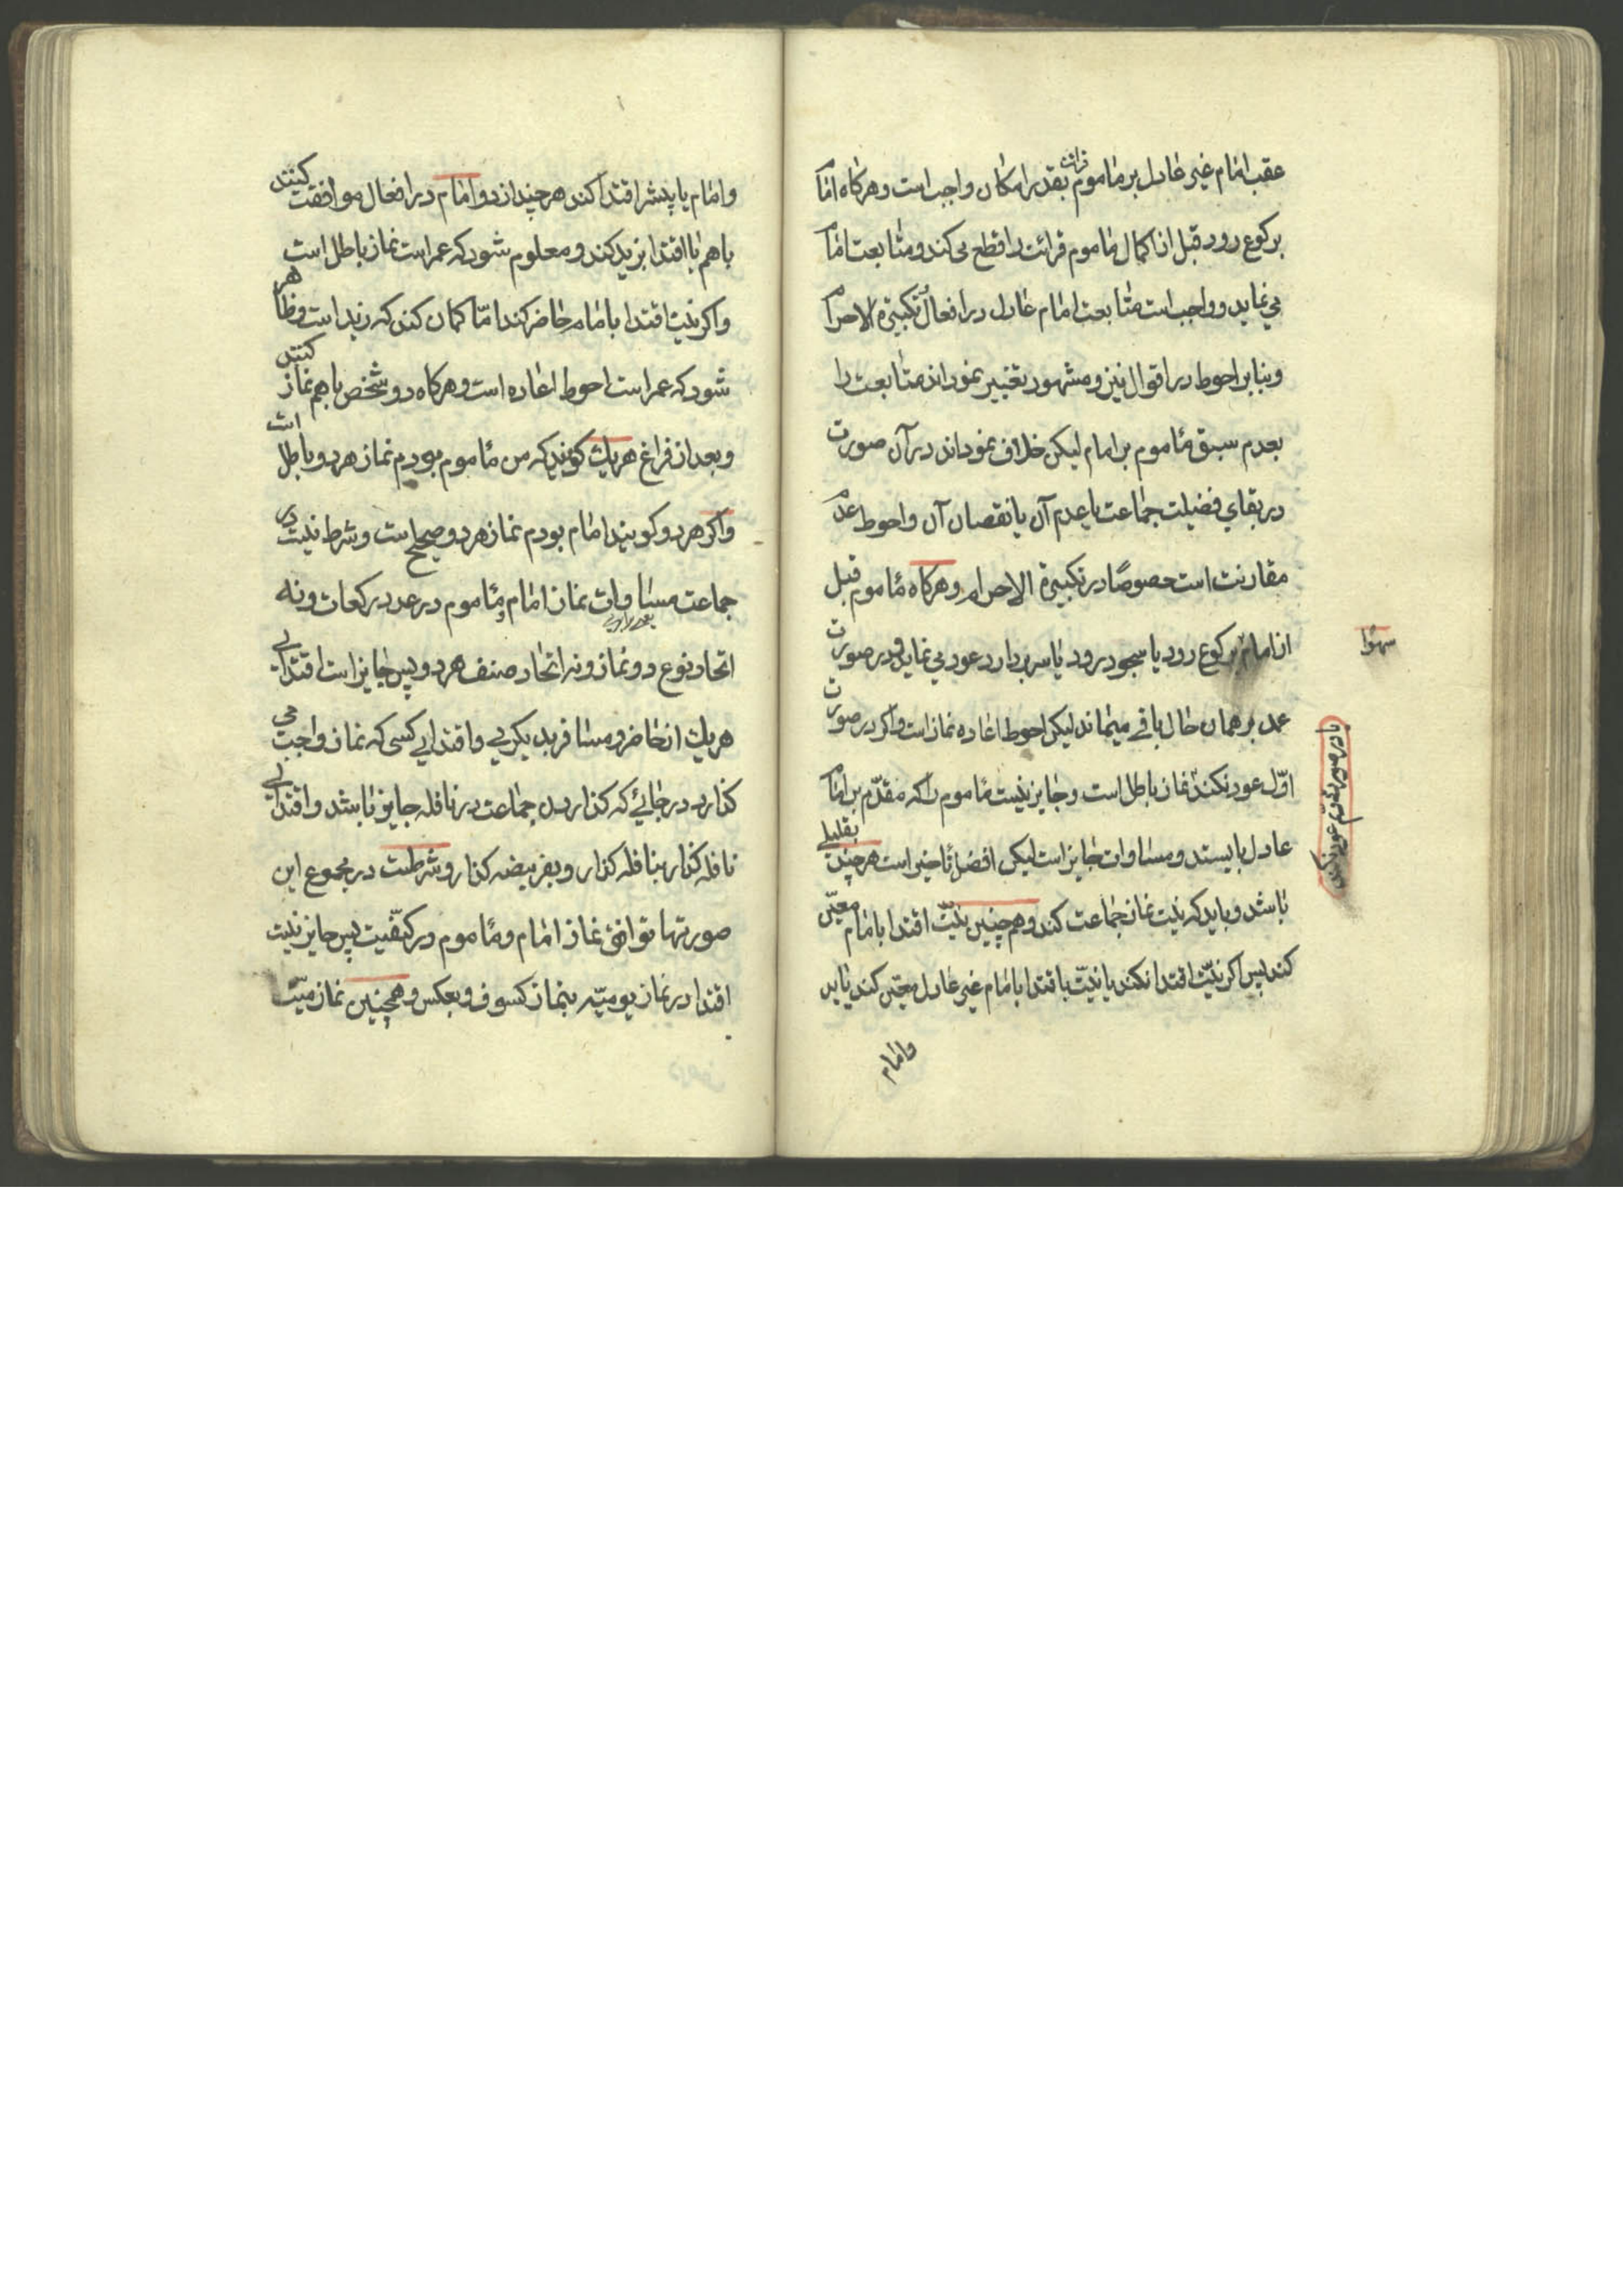 عقب امام غیر عادل بر ماموم قرائت بقدر امکان واجب است و هرگاه امام
برکوع رود قبل از اکمال ماموم قرائت را قطع می کند و متابعت امام
می نماید و واجب است متابعت امام عادل در افعال تکبیرة الاحرام
و بنابر احوط در اقوال نیز و مشهور تفسیر نموداند متابعت را
بعدم سبق ماموم بر امام لیکن خلاف نموداند در آن صورت
در بقای فضیلت جماعت یا عدم آن یا نقصان آن و احوط عدم
مقارنت است خصوصًا در تکبیرة الاحرام و هرگاه ماموم قبل
از امام برکوع رود یا سجود رود یا سر بردارد عود می نماید و در صورت
سهوًا
عمد بر همان حال باقی میماند لیکن احوط اعاده نماز است و اگر در صورت
اوّل عود نکند نماز باطل است و جایز نیست ماموم را که مقدّم بر امام
عادل بایستد و مساوات جایز است لیکن افضل تاخیر است هرچند بقلیلی
باشد و باید که نیت نماز جماعت کند و همچنین نیّت اقتدا بامام معیّن
کند پس اگر نیّت اقتدا نکند یا نیّت باقتدا بامام غیر عادل معیّن کند یا بد
وامام
وامام یا پیشتر اقتدا کند هرچند از دو امام در افعال موافقت کنند
با هم یا اقتدا بزید کند و معلوم شود که عمر است نماز باطل است
و اگر نیت اقتدا بامام حاضر کند امّا گمان کند که زید است و ظاهر
شود که عمر است احوط اعاده است و هرگاه دو شخص با هم نماز کنند
و بعد از فراغ هریک گویند که من ماموم بودم نماز هردو باطل است
و اگر هردو گویند امام بودم نماز هردو صحیح است و شرط نیست در
جماعت مساوات نماز امام و ماموم در عدد رکعات و نه
اتحاد نوع دو نماز و نه اتحاد صنف هردو پس جایز است اقتدای
هریک از حاضر و مسافر بدیگری و اقتدای کسی که نماز واجب می
گذارد در جائی که گذاردن جماعت در نافله جایز باشد و اقتدای
نافله گذار بنافله گذار و بفریضه گذار و شرطست در مجموع این
صورتها توافق نماز امام و ماموم در کیفّیت پس جایز نیست
اقتدا در نماز یومیّه بنماز کسوف و بعکس و همچنین نماز میّت